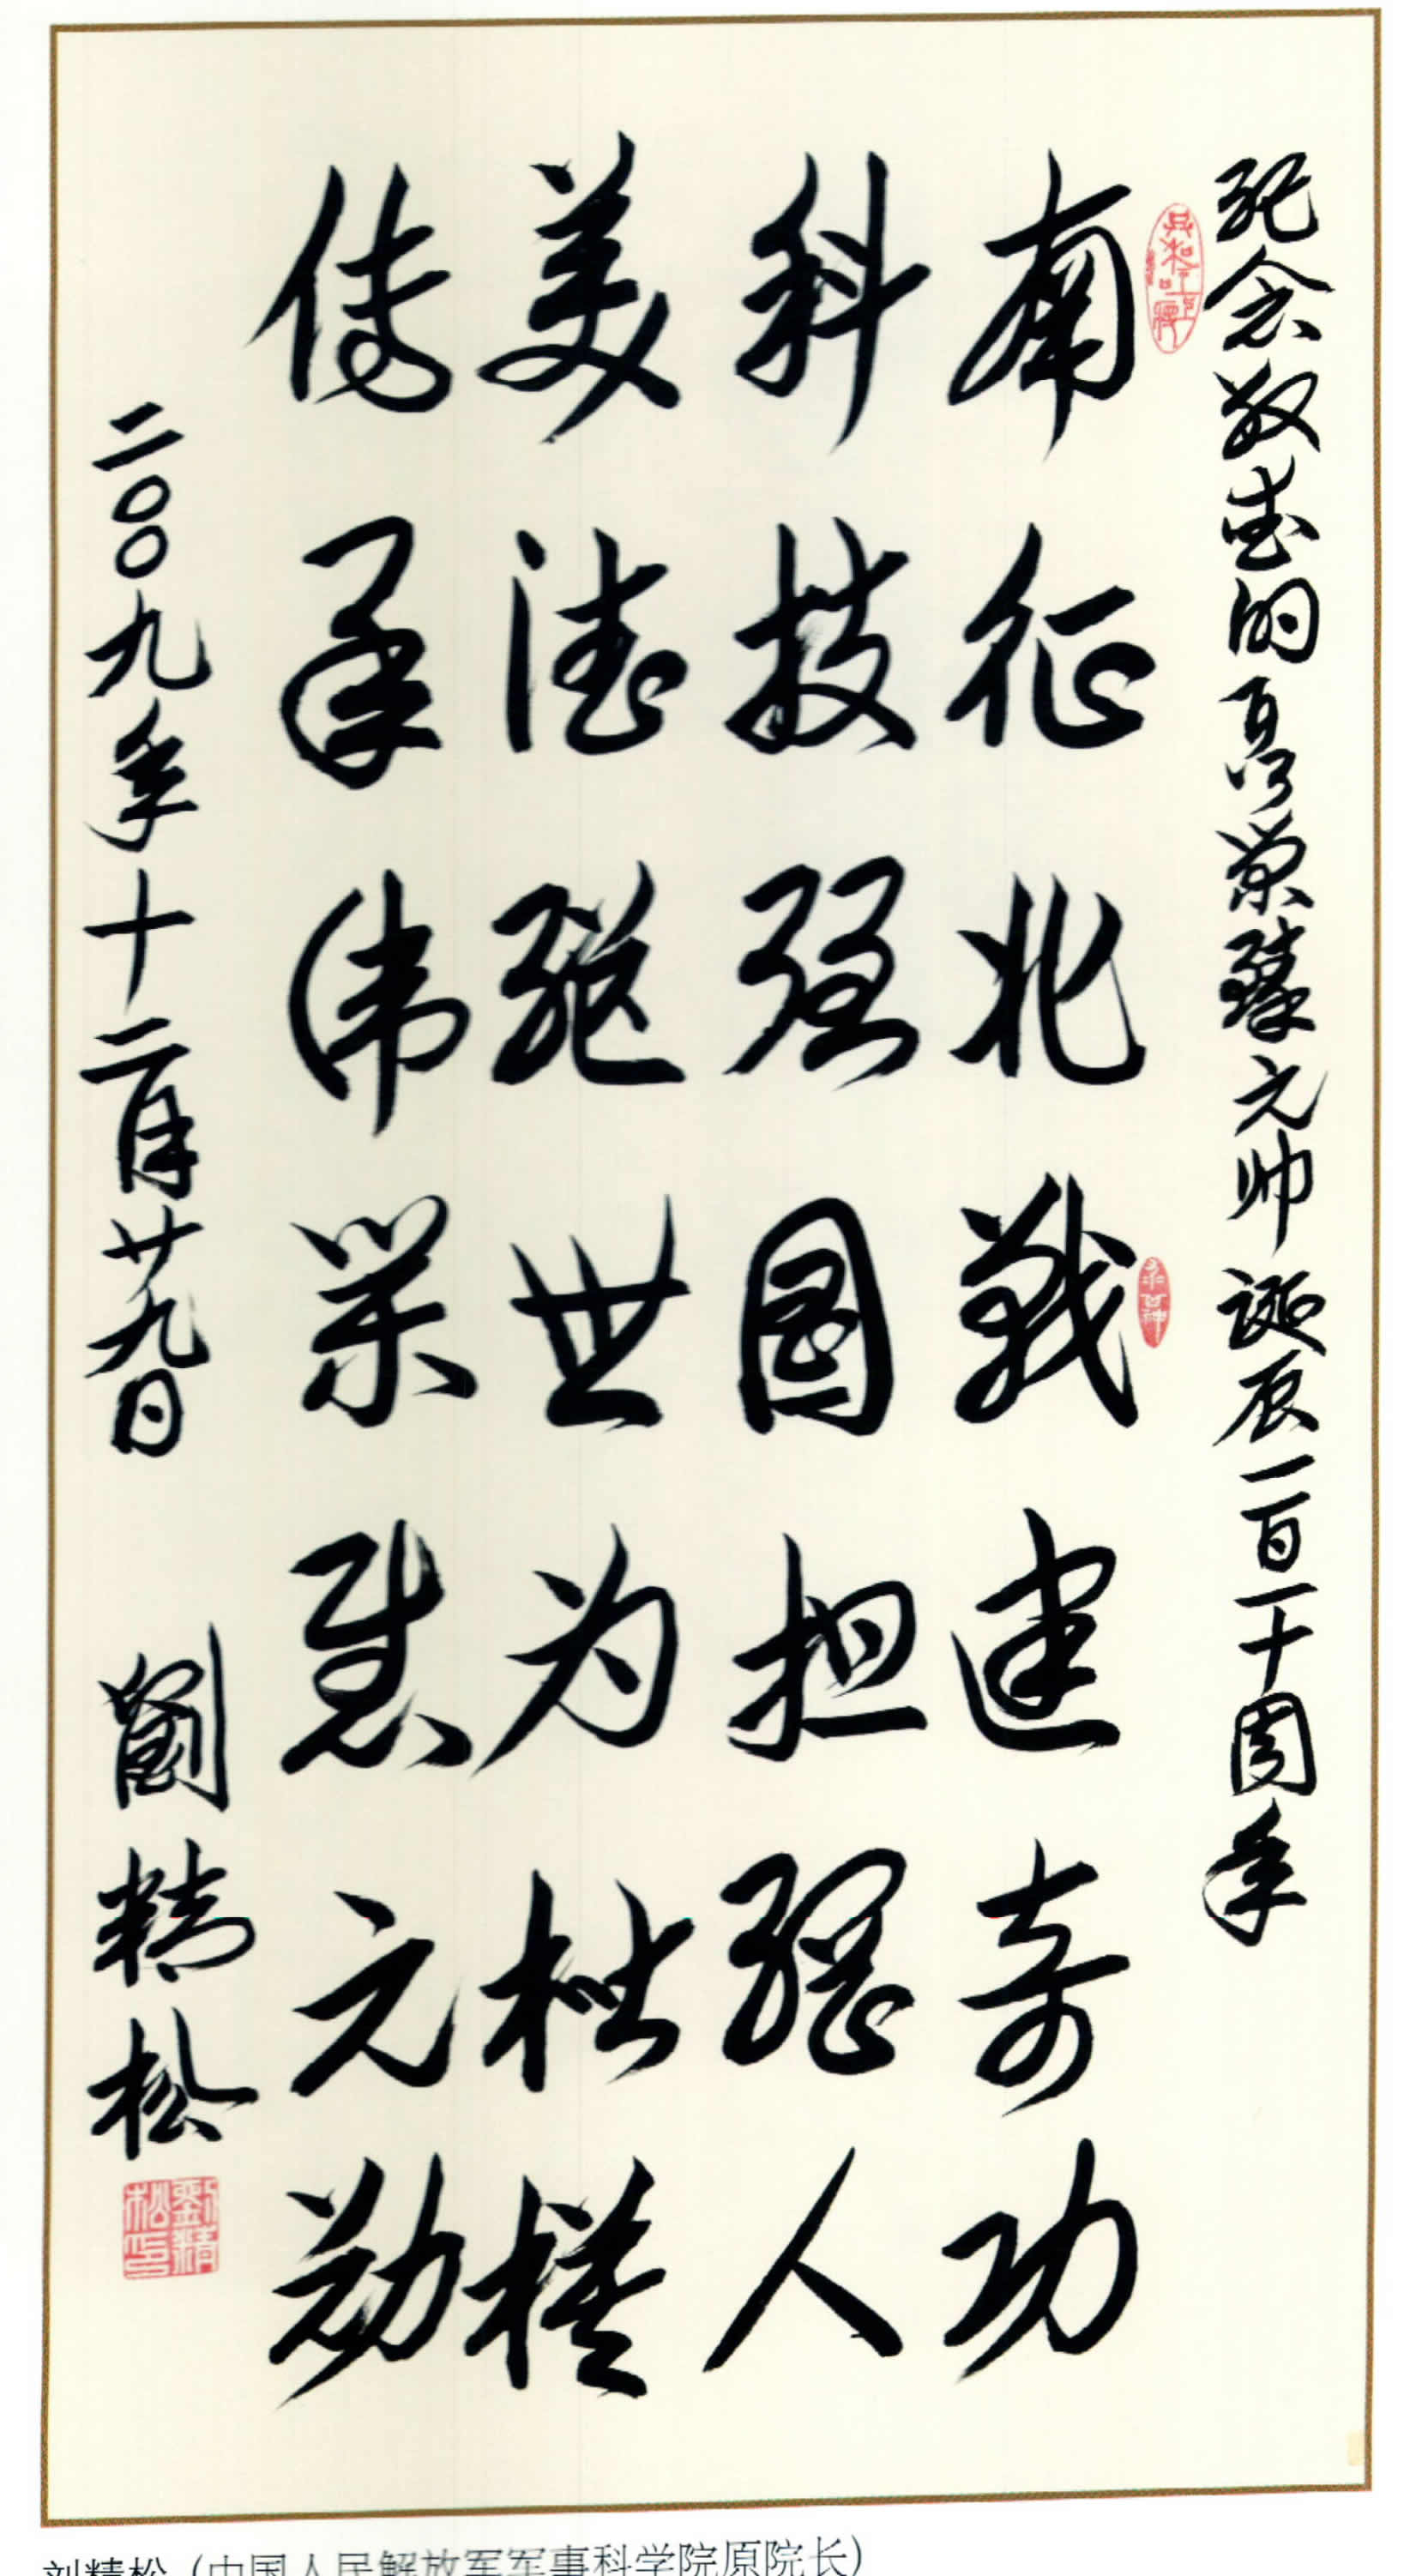 纪念敬爱的聂荣臻元帅诞辰一百一十周年
南征北戰建奇功
科技强國担纲人
美德绝世为楷模
传承伟业慰元勋
二〇〇九年十二月廿九日 劉精松
劉精松印
刘精松(中国人民解放军军事科学院原院长)